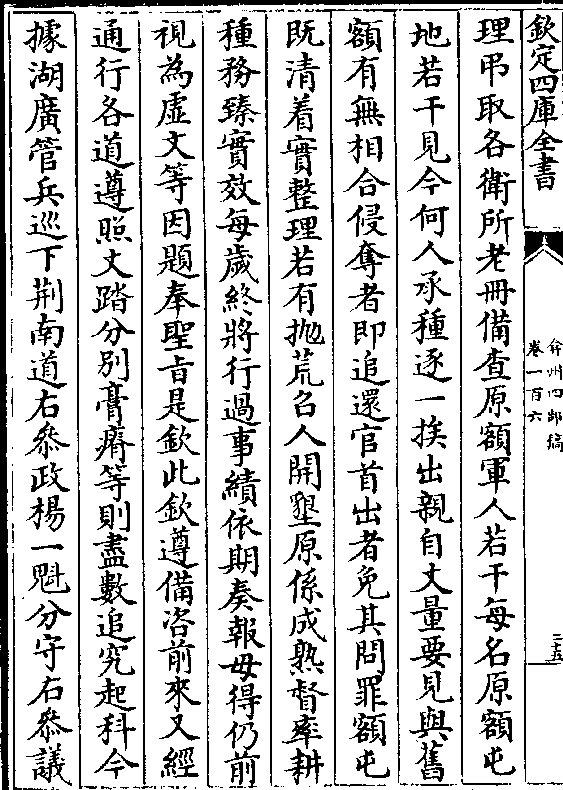 欽定四庫全書
弇州四部稿
卷一百六
三十五
理弔取各衛所老冊備查原額軍人若干每名原額屯
地若干見今何人承種逐一挨出親自丈量要見與舊
額有無相合侵奪者即追還官首出者免其問罪額屯
既清着實整理若有抛荒召人開墾原係成熟督率耕
種務臻實效每歲終將行過事績依期奏報毋得仍前
視為虛文等因題奉聖旨是欽此欽遵備咨前來又經
通行各道遵照丈踏分別膏瘠等則盡數追究起科今
據湖廣管兵巡下荆南道右叅政楊一魁分守右叅議